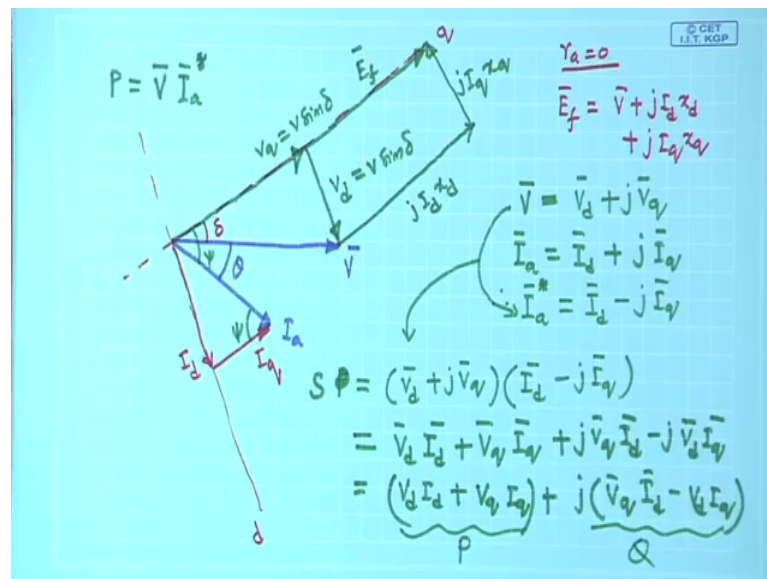 © CET
I.I.T. KGP
P = V̄ Īₐ*
q
Ē_f
jI_q x_q
v_q = v sinδ
v_d = v sinδ
jI_d x_d
δ
ψ
θ
V̄
ψ
I_a
I_d
I_q
d
r_a = 0
Ē_f = V̄ + jI_d x_d
+ jI_q x_q
V̄ = V̄_d + jV̄_q
Ī_a = Ī_d + jĪ_q
Ī_a* = Ī_d - jĪ_q
S = (V̄_d + jV̄_q)(Ī_d - jĪ_q)
= V̄_d Ī_d + V̄_q Ī_q + jV̄_q Ī_d - jV̄_d Ī_q
= (V_d I_d + V_q I_q) + j(V̄_q Ī_d - V_d I_q)
P
Q